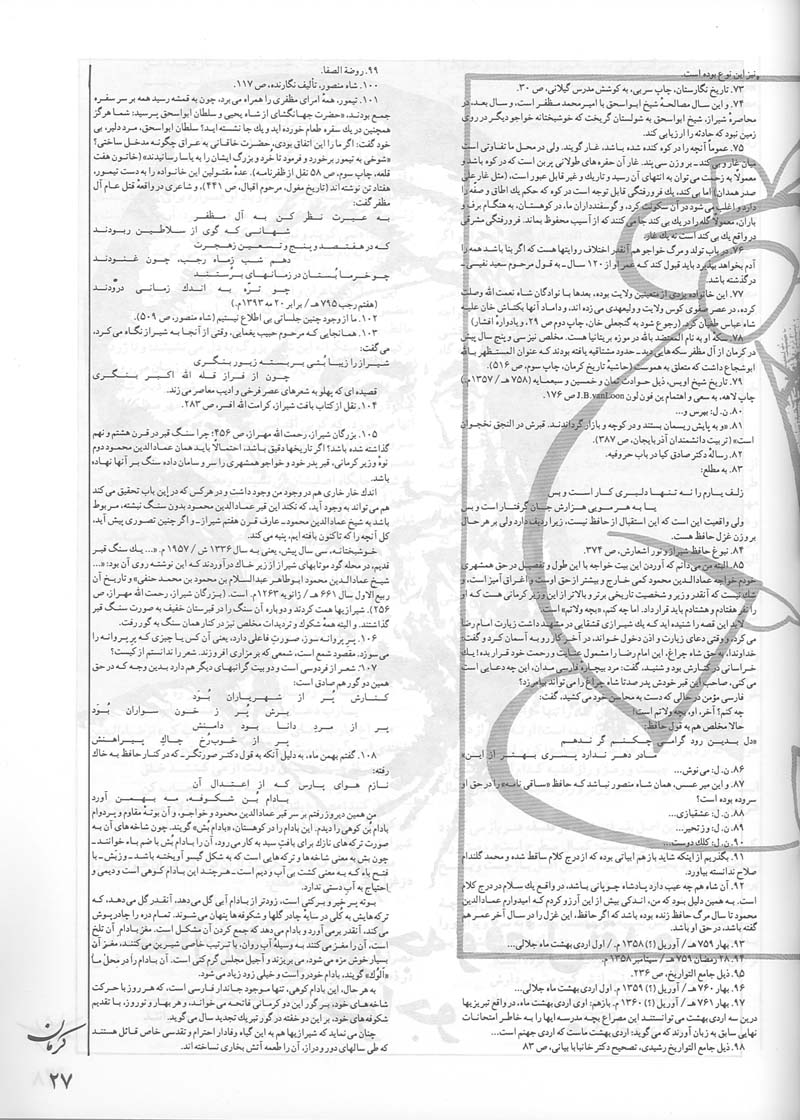 نیز این نوع بوده است.
۷۳. تاریخ نگارستان، چاپ سربی، به کوشش مدرس گیلانی، ص ۳۰.
۷۴. و این سال مصالحهٔ شیخ ابواسحق با امیرمحمد مظفر است، و سال بعد، در
محاصرهٔ شیراز، شیخ ابواسحق به شولستان گریخت که خوشبختانه خواجو دیگر در روی
زمین نبود که حادثه را ارزیابی کند.
۷۵. عموماً آنچه را در کوه کنده شده باشد، غار گویند. ولی در محل ما تفاوتی است
میان غار و بی‌کند ـ بر وزن سی پند. غار آن حفره‌های طولانی پر بن است که در کوه باشد و
معمولاً به زحمت می‌توان به انتهای آن رسید و تاریک و غیر قابل عبور است، (مثل غار علی
صدر همدان) اما بی‌کند، یک فرورفتگی قابل توجه است در کوه که حکم یک اطاق و صفه را
دارد و اغلب می‌شود در آن سکونت کرد، و گوسفندداران ما، در کوهستان، به هنگام برف و
باران، معمولاً گله را در یک بی‌کند جا می‌کنند که از آسیب محفوظ بماند. فرورفتگی مشرقی
در واقع یک بی‌کند است نه یک غار.
۷۶. در باب تولد و مرگ خواجو هم آنقدر اختلاف روایتها هست که اگر بنا باشد همه را
آدم بخواهد بپذیرد باید قبول کند که عمر او از ۱۲۰ سال ـ به قول مرحوم سعید نفیسی ـ
درگذشته باشد.
۷۷. این خانواده یزدی از متعینین ولایت بوده، بعدها با نوادگان شاه نعمت الله وصلت
کرده، در عصر صفوی کوس ولایت و ولیعهدی می‌زده‌اند، و داماد آنها بکتاش خان علیه
شاه عباس طغیان کرد. (رجوع شود به گنجعلی خان، چاپ دوم ص ۲۹، و یادوارهٔ افشار)
۷۸. سکهٔ او به نام المعتضد بالله در موزه بریتانیا هست. مخلص نیز سی و پنج سال پیش
در کرمان از آل مظفر سکه‌هایی دید ـ حدود مشتاقیه یافته بودند که عنوان المستظهر بالله
ابوشجاع داشت که متعلق به هموست (حاشیهٔ تاریخ کرمان، چاپ سوم، ص ۵۱۶).
۷۹. تاریخ شیخ اویس، ذیل حوادث ثمان و خمسین و سبعمایه (۷۵۸ هـ/ ۱۳۵۷م.)
چاپ لاهه، به سعی و اهتمام ین فون لون J.B.vanLoon ص ۱۷۶.
۸۰. ن. ل: بپرس و...
۸۱. «و به پایش ریسمان بستند و در کوچه و بازار گرداندند. قبرش در النجق نخجوان
است» (تربیت دانشمندان آذربایجان، ص ۳۸۷).
۸۲. رسالهٔ دکتر صادق کیا در باب حروفیه.
۸۳. به مطلع:
زلف یارم را نه تنها دلبری کار است و بس
یا به هر مویی هزارش جان گرفتار است و بس
ولی واقعیت این است که این استقبال از حافظ نیست، زیرا ردیف دارد ولی بر هر حال
بر وزن غزل حافظ هست.
۸۴. نبوغ حافظ شیراز و نور اشعارش، ص ۳۷۴.
۸۵. البته من می‌دانم که آوردن این بیت خواجه با این طول و تفصیل در حق همشهری
خودم خواجه عمادالدین محمود کمی خارج و بیشتر از حق اوست و اغراق آمیز است، و
شک نیست که آنقدر وزیر و شخصیت تاریخی برتر و بالاتر از این وزیر کرمانی هست که او
را نفر هفتادم و هشتادم باید قرار داد. اما چه کنم، «بچه ولاتم» است!
لابد این قصه را شنیده‌اید که یک شیرازی قشقایی در مشهد داشت زیارت امام رضا
می‌کرد، و وقتی دعای زیارت و اذن دخول خواند، در آخر کار رو به آسمان کرد و گفت:
خداوندا، به حق شاه چراغ، این امام رضا را مشمول عنایت و رحمت خود قرار بده! یک
خراسانی در کنارش بود و شنید، گفت: مرد بیچارهٔ فارسی مدان، این چه دعایی است
می‌کنی، صاحب این قبر خودش پدر صدتا شاه چراغ را می‌تواند بیامرزد؟
فارسی مؤمن در حالی که دست به محاسن خود می‌کشید، گفت:
چه کنم؟ آخر، او، بچه ولاتم است!
حالا مخلص هم به قول حافظ:
«دل بدین رود گرامی چکنم گر ندهم
مادر دهر ندارد پسری بهتر از این»
۸۶. ن. ل: می نوش...
۸۷. و این میر عسس، همان شاه منصور نباشد که حافظ «ساقی نامه» را در حق او
سروده بوده است؟
۸۸. ن. ل: عشقبازی...
۸۹. ن. ل: وز تحیر...
۹۰. ن. ل: کلک دوست...
۹۱. بگذریم از اینکه شاید باز هم ابیاتی بوده که از درج کلام ساقط شده و محمد گلندام
صلاح ندانسته بیاورد.
۹۲. آن شاه هم چه عیب دارد پادشاه چوپانی باشد، در واقع یک سلام در درج کلام
است. به همین دلیل بود که من، اندکی بیش از این آرزو کردم که امیدوارم عمادالدین
محمود تا سال مرگ حافظ زنده بوده باشد که اگر حافظ، این غزل را در سال آخر عمر هم
گفته باشد، در حق او باشد.
۹۳. بهار ۷۵۹ هـ/ آوریل (؟) ۱۳۵۸ م. / اول اردی بهشت ماه جلالی...
۹۴. ۲۸ رمضان ۷۵۹ هـ/ سپتامبر ۱۳۵۸ م.
۹۵. ذیل جامع التواریخ، ص ۲۳۶.
۹۶. بهار ۷۶۰ هـ/ آوریل (؟) ۱۳۵۹ م. اول اردی بهشت ماه جلالی...
۹۷. بهار ۷۶۱ هـ/ آوریل (؟) ۱۳۶۰ م. بازهم: اوی اردی بهشت ماه، در واقع تبریزیها
درین سه اردی بهشت می‌توانستند این مصراع بچه مدرسه‌ایها را به خاطر امتحانات
نهایی سابق به زبان آورند که می‌گوید: اردی بهشت ماست که اردی جهنم است...
۹۸. ذیل جامع التواریخ رشیدی، تصحیح دکتر خانبابا بیانی، ص ۸۳
۹۹. روضة الصفا.
۱۰۰. شاه منصور، تألیف نگارنده، ص ۱۱۷.
۱۰۱. تیمور، همهٔ امرای مظفری را همراه می‌برد، چون به قمشه رسید همه بر سر سفره
جمع بودند، «حضرت جهانگشای از شاه یحیی و سلطان ابواسحق پرسید: شما هرگز
همچنین در یک سفره طعام خورده‌اید و یک جا نشسته‌اید؟ سلطان ابواسحق، مرد دلیر، بی
خود گفت: اگر ما را این اتفاق بودی، حضرت خاقانی به عراق چگونه مدخل ساختی؟
«شوخی به تیمور برخورد و فرمود تا خرد و بزرگ ایشان را به یاسا رسانیدند» (خاتون هفت
قلعه، چاپ سوم، ص ۵۸ نقل از ظفرنامه). عدهٔ مقتولین این خانواده را به دست تیمور،
هفتاد تن نوشته‌اند (تاریخ مغول، مرحوم اقبال، ص ۴۴۱)، و شاعری در واقعهٔ قتل عام آل
مظفر گفت:
به عبرت نظر کن به آل مظفر
شهانی که گوی از سلاطین ربودند
که در هفتصد و پنج و تسعین زهجرت
دهم شب زماه رجب، چون غنودند
چو خرما بُستان در زمانهای برُستند
چو تره به اندک زمانی درودند
(هفتم رجب ۷۹۵ هـ/ برابر ۲۰ مه ۱۳۹۳م.)
۱۰۲. ما از وجود چنین جلساتی بی اطلاع نیستیم (شاه منصور، ص ۵۰۹).
۱۰۳. همانجایی که مرحوم حبیب یغمایی، وقتی از آنجا به شیراز نگاه می‌کرد،
می‌گفت:
شیراز را زیبا بُتی بربسته زیور بنگری
چون از فراز قله الله اکبر بنگری
قصیده‌ای که پهلو به شعرهای عصر فرخی و ادیب معاصر می‌زند.
۱۰۴. نقل از کتاب بافت شیراز، کرامت الله افسر، ص ۲۸۳.
۱۰۵. بزرگان شیراز، رحمت الله مهراز، ص ۴۵۶؛ چرا سنگ قبر در قرن هشتم و نهم
گذاشته شده باشد؟ اگر تاریخها دقیق باشد، احتمالاً باید همان عمادالدین محمود دوم
نوهٔ وزیر کرمانی، قبر پدر خود و خواجو همشهری را سر و سامان داده سنگ بر آنها نهاده
باشد.
اندک خار خاری هم در وجود من وجود داشت و در هرکس که در این باب تحقیق می‌کند
هم می‌تواند به وجود آید، که نکند این قبر عمادالدین محمود بدون سنگ نبشته، مربوط
باشد به شیخ عمادالدین محمود ـ عارف قرن هفتم شیراز ـ و اگر چنین تصوری پیش آید،
کل آنچه را که تاکنون بافته ایم، پنبه می‌کند.
خوشبختانه، سی سال پیش، یعنی به سال ۱۳۳۶ ش / ۱۹۵۷ م. «... یک سنگ قبر
قدیم، در محله گود موتابهای شیراز از زیر خاک در آوردند که این نوشته روی آن بود: «...
شیخ عمادالدین محمود ابوطاهر عبدالسلام بن محمود بن محمد حنفی» و تاریخ آن
ربیع الاول سال ۶۶۱ هـ / ژانویه ۱۲۶۳م. است. (بزرگان شیراز، رحمت الله مهراز، ص
۲۵۶). شیرازیها همت کردند و دوباره آن سنگ را در قبرستان خفیف به صورت سنگ قبر
گذاشتند. و البته همهٔ شکوک و تردیدات مخلص نیز در کنار همان سنگ به گور رفت.
۱۰۶. پر پروانه سوز، صورتِ فاعلی دارد، یعنی آن کس یا چیزی که پر پروانه را
می‌سوزد. مقصود شمع است، شمعی که بر مزاری افروزند. شعر را ندانستم از کیست؟
۱۰۷. شعر از فردوسی است و دو بیت گرانبهای دیگر هم دارد بدین وجه که در حق
همین دو گور هم صادق است:
کنارش پُر از شهریاران بُوَد
برش پُر ز خون سواران بُوَد
پر از مردِ دانا بود دامنش
پر از خوب‌رُخ چاکِ پیراهنش
۱۰۸. گفتم بهمن ماه، به دلیل آنکه به قول دکتر صورتگر ـ که در کنار حافظ به خاک
رفته:
نازم هوای پارس که از اعتدال آن
بادام بُن شکوفه، مه بهمن آورد
من همین دیروز رفتم بر سر قبر عمادالدین محمود و خواجو، و آن بوتهٔ مقاوم و پردوام
بادام بُن کوهی را دیدم. این بادام را در کوهستان، «بادام بُش» گویند. چون شاخه‌های آن به
صورت ترکه‌های نازک برای بافتِ سبد به کار می‌رود، آن را بادام بُش با ضم باء خوانند ـ
چون بش به معنی شاخه‌ها و ترکه‌هایی است که به شکل گیسو آویخته باشد ـ وزبَش ـ با
فتح باء که به معنی کشت بی آب و دیم است ـ هرچند این بادام کوهی است و دیمی و
احتیاج به آب دستی ندارد.
بوته پر خیر و برکتی است، زودتر از بادام آبی گل می‌دهد، آنقدر گل می‌دهد، که
ترکه‌هایش به کلی در سایهٔ چادر گلها و شکوفه‌ها پنهان می‌شوند. تمام دره را چادرپوش
می‌کند، آنقدر برمی‌آورد و بادام می‌دهد که جمع کردن آن مشکل است. مغز بادام آن تلخ
است، آن را مغز می‌کنند به وسیلهٔ آب روان، با ترتیب خاصی شیرین می‌کنند، مغز آن
بسیار خوش مزه می‌شود، می‌بریزند و آجیل مجلس گرم کنی است. آن بادام را در محل ما
«آلوُک» گویند، بادام خودرو است و خیلی زود زیاد می‌شود.
به هر حال، این بادام کوهی، تنها موجود جاندار فارسی است، که هر روز با حرکت
شاخه‌های خود، بر گور این دو کرمانی فاتحه می‌خواند، و هر بهار و نوروز، با تقدیم
شکوفه‌های خود، بر این دو خفته در گور تبریک تجدید سال می‌گوید.
چنان می‌نماید که شیرازیها هم به این گیاه وفادار احترام و تقدسی خاص قائل هستند
که طی سالهای دور و دراز، آن را طعمه آتش بخاری نساخته‌اند.
کرمان
۲۷